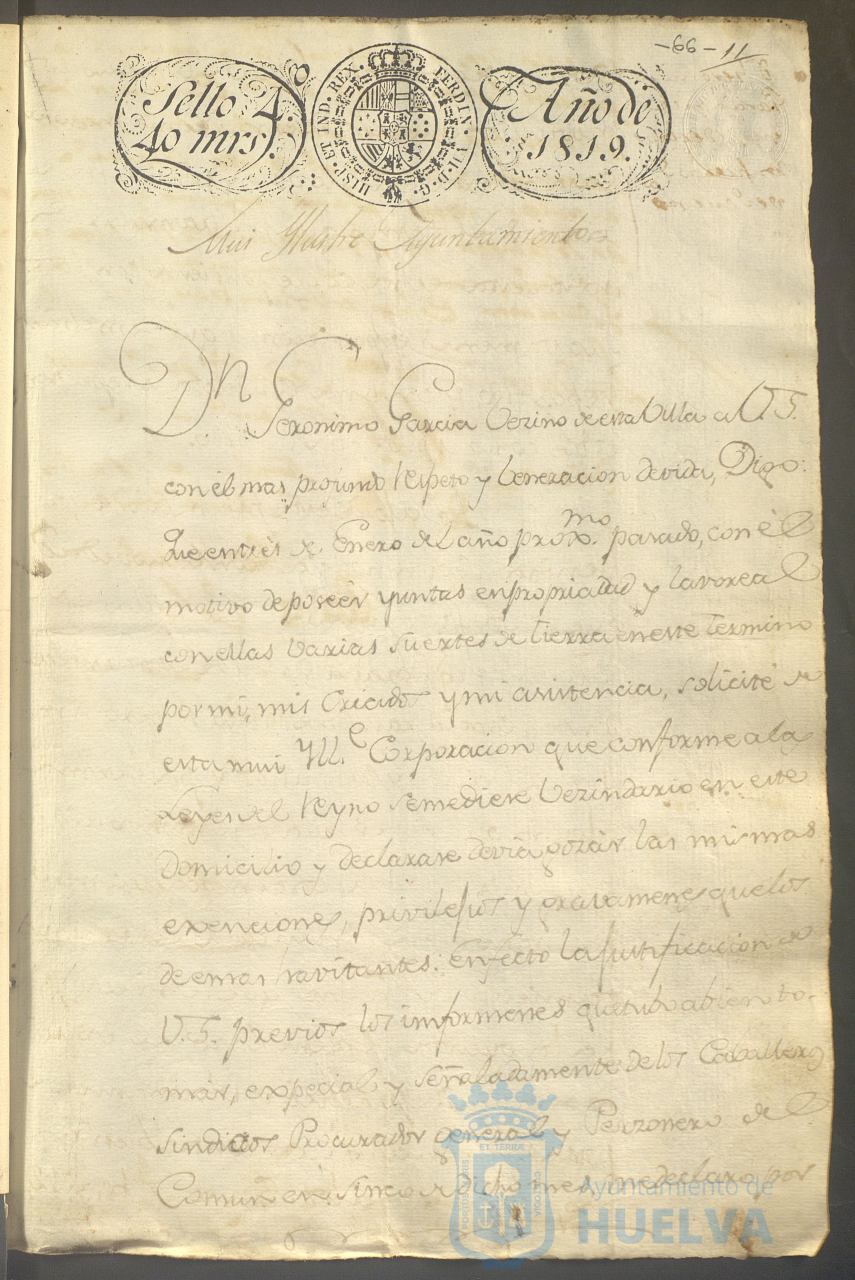 -66- 11
Sello 4.º
40 mrs.
HISP. ET IND. REX. FERDIN. VII. D. G.
Año de
1819.
Mui Ylustre Ayuntamiento
Dn Geronimo Garcia Vezino de esta Villa a V.S.
con él mas profundo respeto y veneracion devida, Digo:
Que en tres de Enero del año proxmo. pasado, con él
motivo de poseér yuntas en propriedad y lavorear
con ellas varias suertes de tierra en este termino
por mi, mis criados y mi asistencia, solicité de
esta mui Yll.e Corporacion que conforme a la
Leyes del Reyno se me diese vezindario en este
Domicilio y declarase devia gozár las mismas
exenciones, privilejios y gravamenes que los
demas havitantes: En efecto la justificacion de
V.S. previos los informenes que tubo a bien to-
már, expecial y señaladamente de los Caballeros
sindicos Procurador general y Perzonero del
Comun en sinco de dicho mes me declaro por
ET TERRAE
Ayuntamiento de
HUELVA